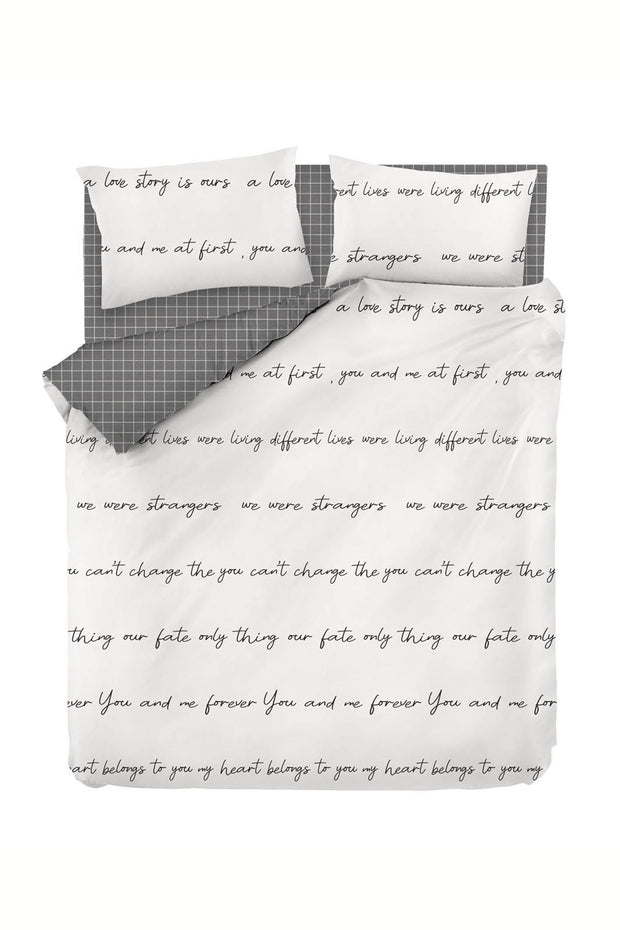 a love story is ours a love
u and me at first , you and
rent lives were living different l
e strangers we were st
a love story is ours a love st
d me at first , you and me at first , you and
living nt lives were living different lives were living different lives were
we were strangers we were strangers we were strangers
u can't change the you can't change the you can't change the y
thing our fate only thing our fate only thing our fate only
ever You and me forever You and me forever You and me for
art belongs to you my heart belongs to you my heart belongs to you my